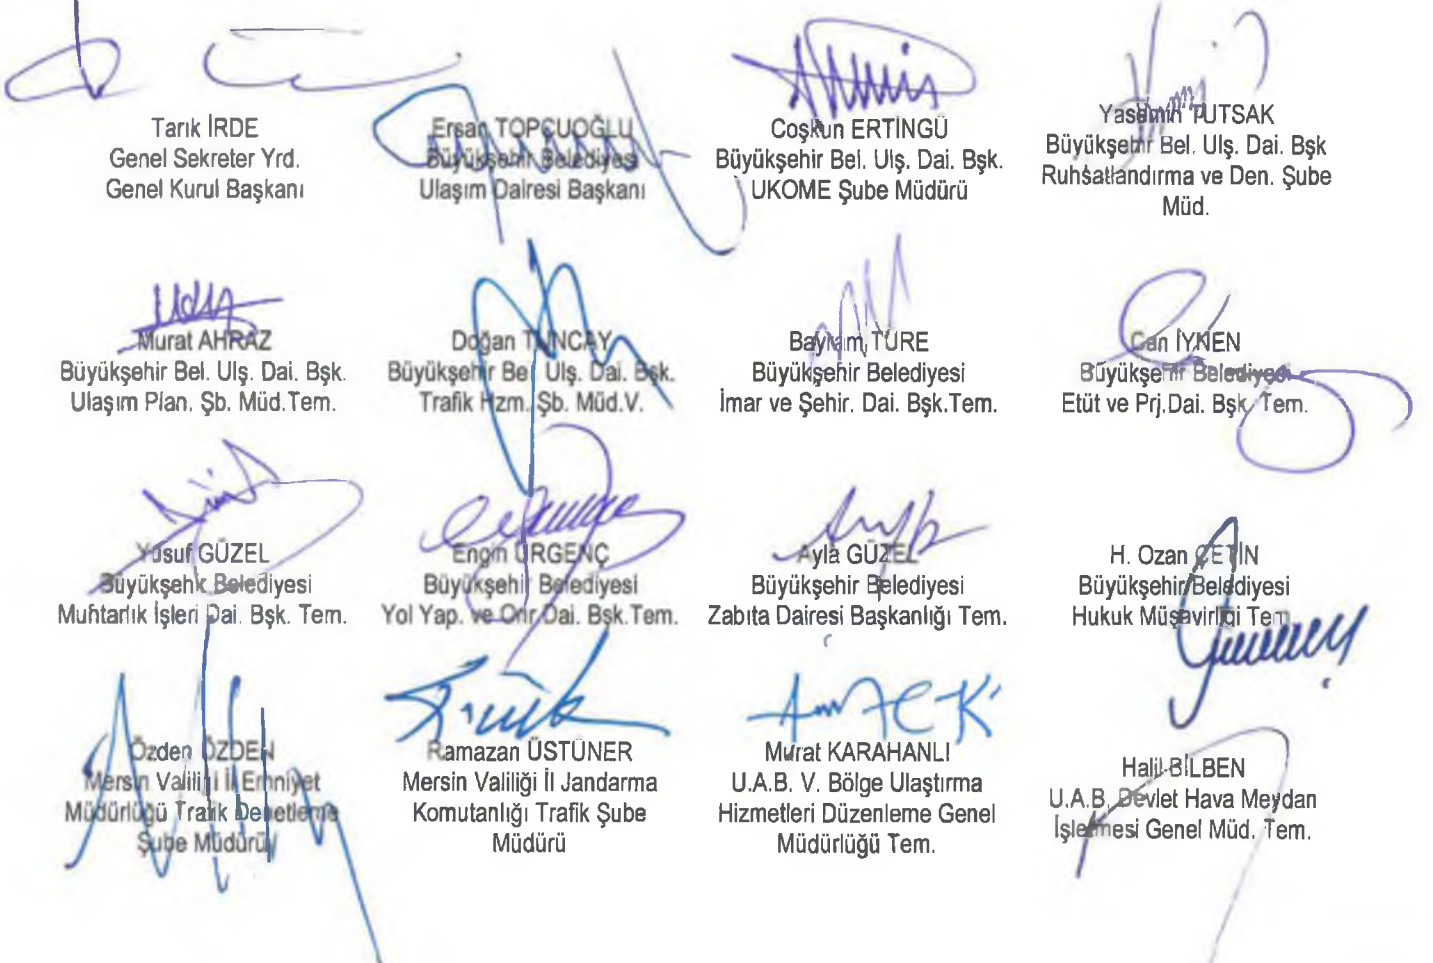 Tarık İRDE
Genel Sekreter Yrd.
Genel Kurul Başkanı
Ersan TOPCUOĞLU
Büyükşehir Belediyesi
Ulaşım Dairesi Başkanı
Coşkun ERTİNGÜ
Büyükşehir Bel. Ulş. Dai. Bşk.
UKOME Şube Müdürü
Yasemin TUTSAK
Büyükşehir Bel. Ulş. Dai. Bşk
Ruhsatlandırma ve Den. Şube
Müd.
Murat AHRAZ
Büyükşehir Bel. Ulş. Dai. Bşk.
Ulaşım Plan. Şb. Müd.Tem.
Doğan TUNCAY
Büyükşehir Bel. Ulş. Dai. Bşk.
Trafik Hzm. Şb. Müd.V.
Bayram TÜRE
Büyükşehir Belediyesi
İmar ve Şehir. Dai. Bşk.Tem.
Can İYNEN
Büyükşehir Belediyesi
Etüt ve Prj.Dai. Bşk. Tem.
Yusuf GÜZEL
Büyükşehir Belediyesi
Muhtarlık İşleri Dai. Bşk. Tem.
Engin ÜRGENÇ
Büyükşehir Belediyesi
Yol Yap. ve Onr Dai. Bşk.Tem.
Ayla GÜZEL
Büyükşehir Belediyesi
Zabıta Dairesi Başkanlığı Tem.
H. Ozan ÇETİN
Büyükşehir Belediyesi
Hukuk Müşavirliği Tem
Özden ÖZDEN
Mersin Valiliği İl Emniyet
Müdürlüğü Trafik Denetleme
Şube Müdürü
Ramazan ÜSTÜNER
Mersin Valiliği İl Jandarma
Komutanlığı Trafik Şube
Müdürü
Murat KARAHANLI
U.A.B. V. Bölge Ulaştırma
Hizmetleri Düzenleme Genel
Müdürlüğü Tem.
Halil BİLBEN
U.A.B. Devlet Hava Meydan
İşletmesi Genel Müd. Tem.